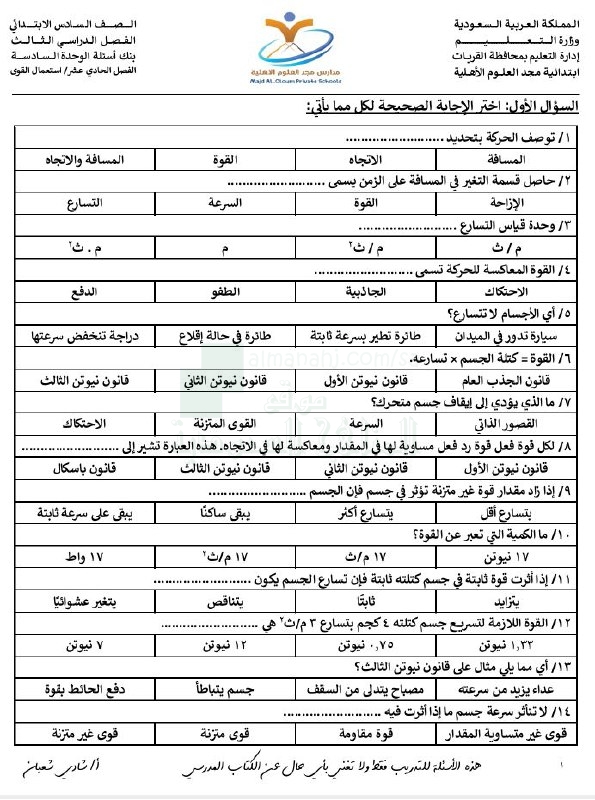 المملكة العربية السعودية
وزارة التعليم
إدارة التعليم بمحافظة القريات
ابتدائية مجد العلوم الأهلية
مدارس مجد العلوم الأهلية
Majd AL-Oloum Private Schools
الصف السادس الابتدائي
الفصل الدراسي الثالث
بنك أسئلة الوحدة السادسة
الفصل الحادي عشر/ استعمال القوى
السؤال الأول: اختر الإجابة الصحيحة لكل مما يأتي:
١/ توصف الحركة بتحديد..........................
المسافة الاتجاه القوة المسافة والاتجاه
٢/ حاصل قسمة التغير في المسافة على الزمن يسمى..........................
الإزاحة القوة السرعة التسارع
٣/ وحدة قياس التسارع..........................
م/ ث م/ ث٢ م م . ث٢
٤/ القوة المعاكسة للحركة تسمى..........................
الاحتكاك الجاذبية الطفو الدفع
٥/ أي الأجسام لا تتسارع؟
سيارة تدور في الميدان طائرة تطير بسرعة ثابتة طائرة في حالة إقلاع دراجة تنخفض سرعتها
٦/ القوة = كتلة الجسم × تسارعه.
قانون الجذب العام قانون نيوتن الأول قانون نيوتن الثاني قانون نيوتن الثالث
٧/ ما الذي يؤدي إلى إيقاف جسم متحرك؟
القصور الذاتي السرعة القوى المتزنة الاحتكاك
٨/ لكل قوة فعل قوة رد فعل مساوية لها في المقدار ومعاكسة لها في الاتجاه. هذه العبارة تشير إلى..........................
قانون نيوتن الأول قانون نيوتن الثاني قانون نيوتن الثالث قانون باسكال
٩/ إذا زاد مقدار قوة غير متزنة تؤثر في جسم فإن الجسم..........................
يتسارع أقل يتسارع أكثر يبقى ساكنًا يبقى على سرعة ثابتة
١٠/ ما الكمية التي تعبر عن القوة؟
١٧ نيوتن ١٧ م/ث ١٧ م/ث٢ ١٧ واط
١١/ إذا أثرت قوة ثابتة في جسم كتلته ثابتة فإن تسارع الجسم يكون..........................
يتزايد ثابتًا يتناقص يتغير عشوائيًا
١٢/ القوة اللازمة لتسريع جسم كتلته ٤ كجم بتسارع ٣ م/ث٢ هي..........................
١,٣٢ نيوتن ٠,٧٥ نيوتن ١٢ نيوتن ٧ نيوتن
١٣/ أي مما يلي مثال على قانون نيوتن الثالث؟
عداء يزيد من سرعته مصباح يتدلى من السقف جسم يتباطأ دفع الحائط بقوة
١٤/ لا تتأثر سرعة جسم ما إذا أثرت فيه..........................
قوى غير متساوية المقدار قوة مقاومة قوى متزنة قوى غير متزنة
١ هذه الأسئلة للتدريب فقط ولا تغني بأي حال عن الكتاب المدرسي أ/ شادي شعبان
almanahj.com/sa
موقع